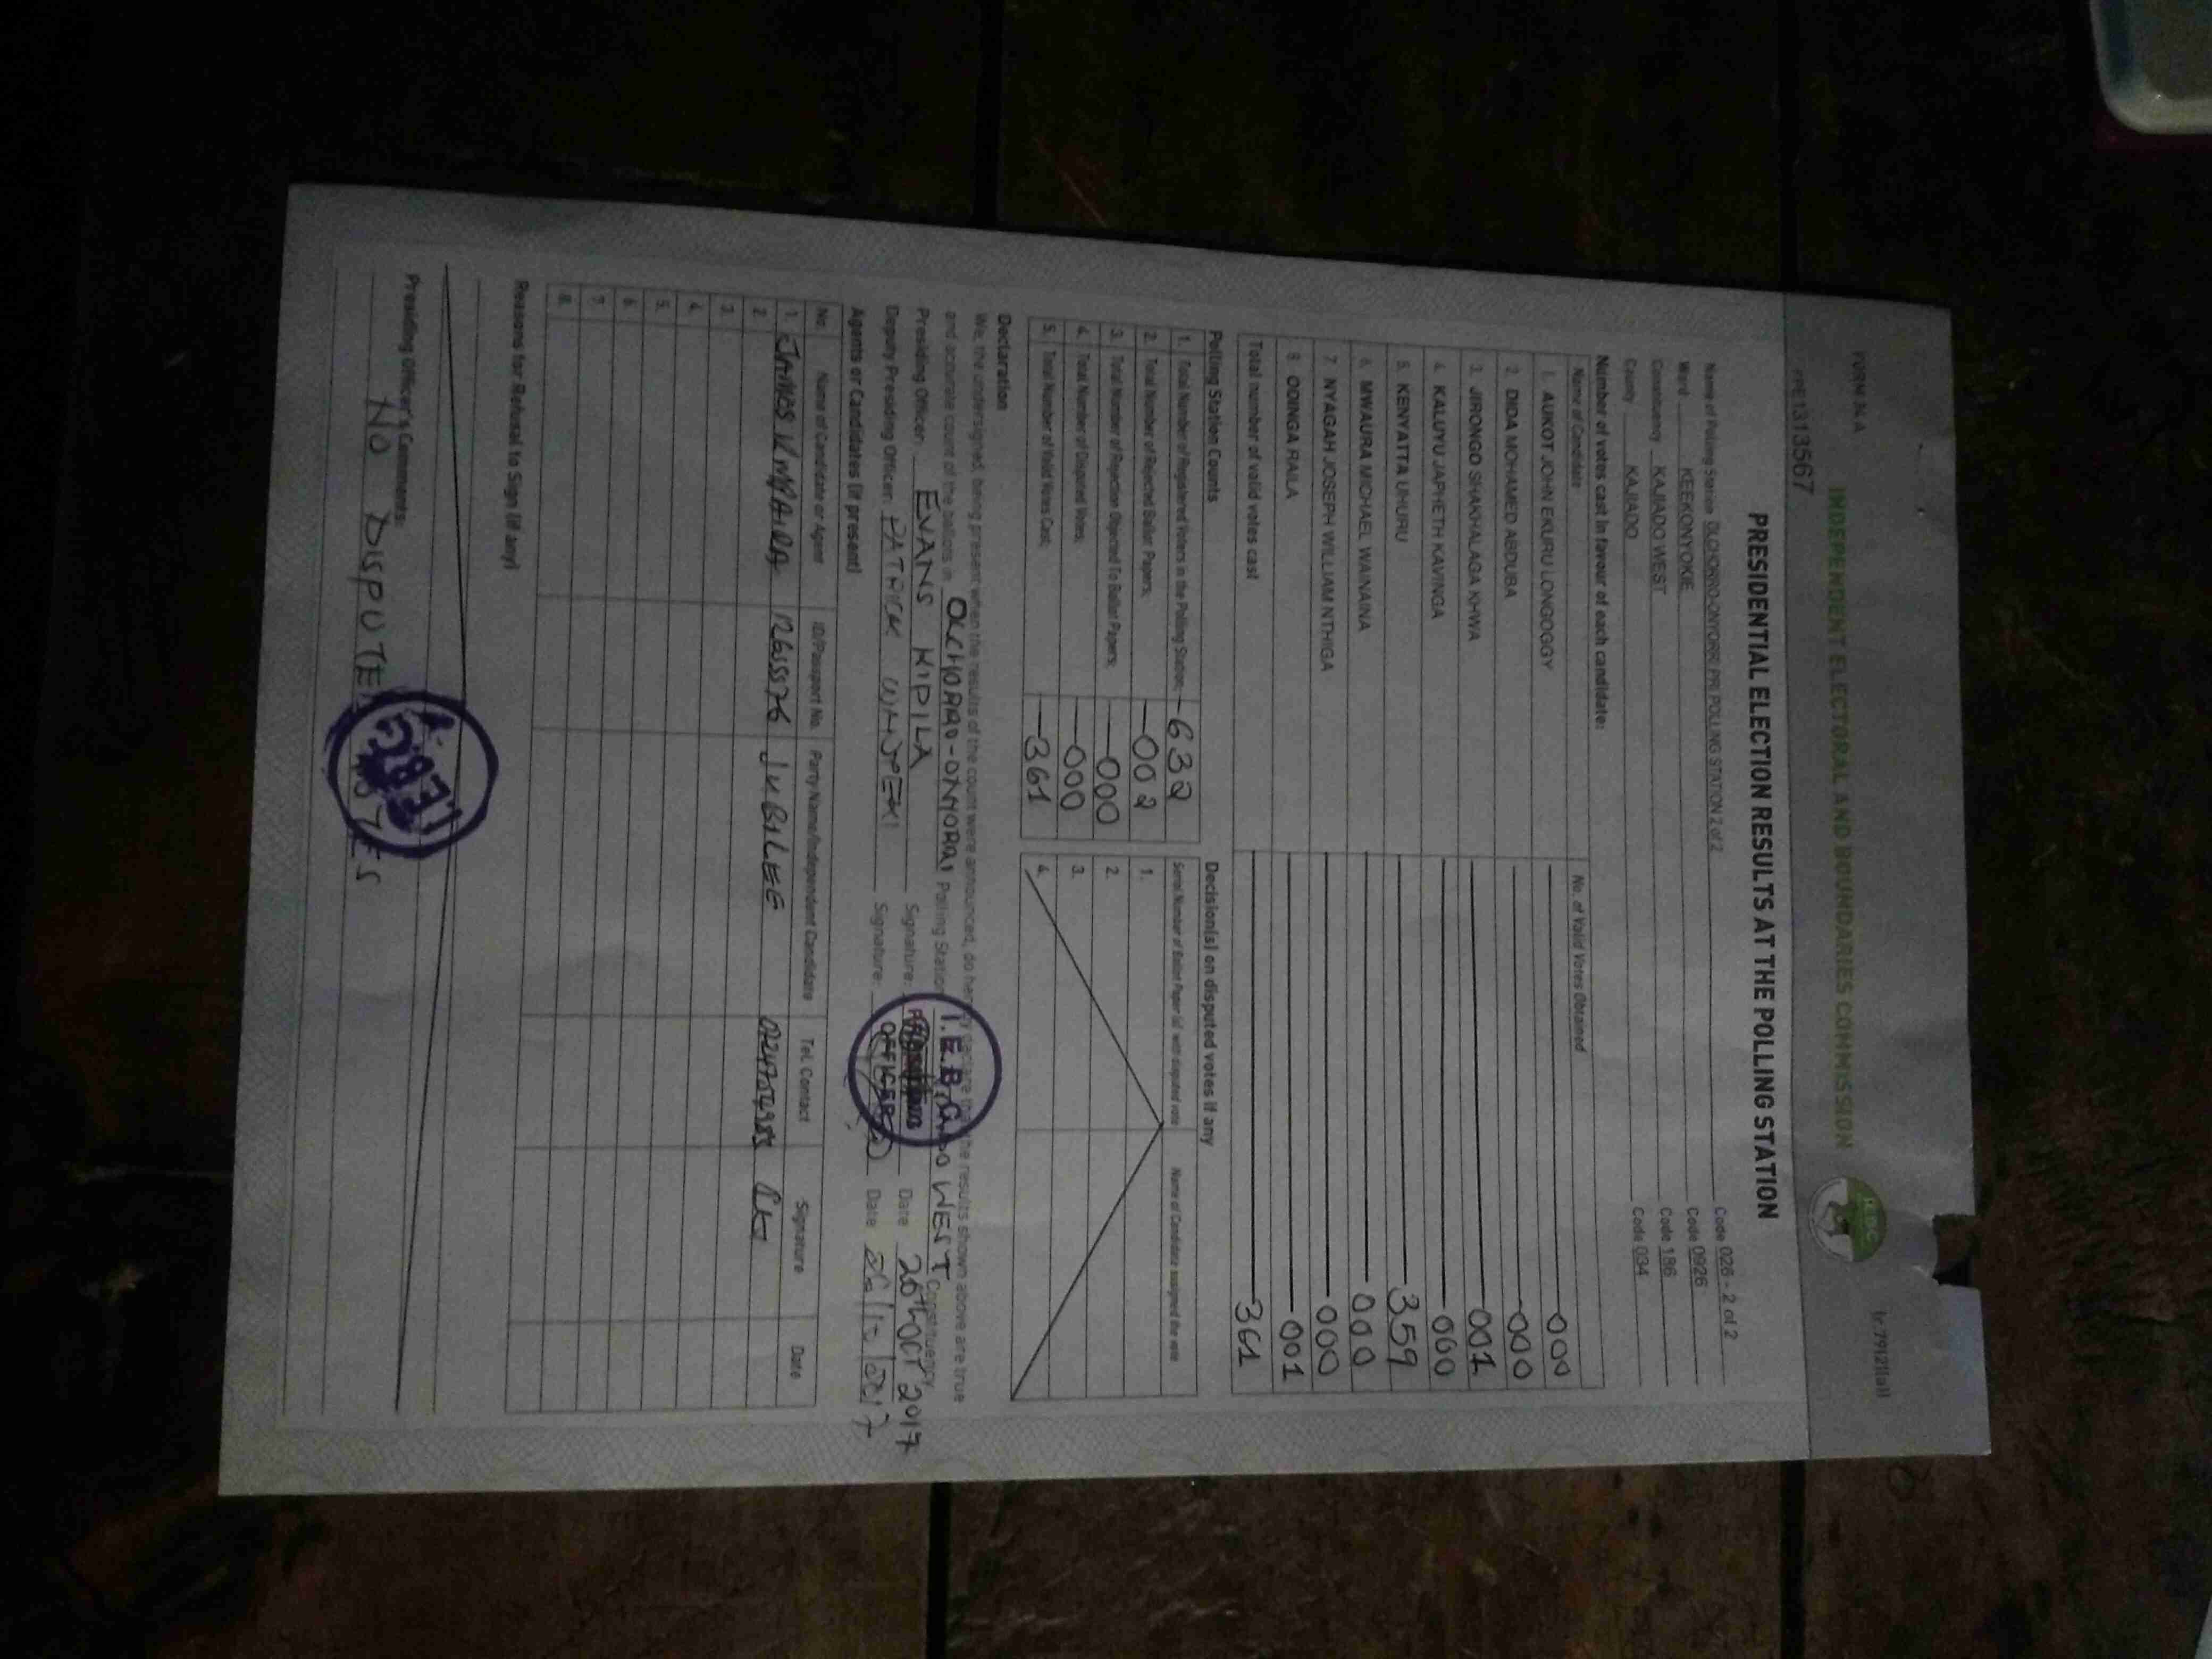 FORM 34 A
INDEPENDENT ELECTORAL AND BOUNDARIES COMMISSION
PPE1313567
PRESIDENTIAL ELECTION RESULTS AT THE POLLING STATION
Name of Polling Station OLCHORRO-ONYORRI PRI POLLING STATION 2 of 2 Code 026 - 2 of 2
Ward KEEKONYOKIE Code 0926
Constituency KAJIADO WEST Code 186
County KAJIADO Code 034
Number of votes cast in favour of each candidate:
Name of Candidate No. of Valid Votes Obtained
1. AUKOT JOHN EKURU LONGOGGY 000
2. DIDA MOHAMED ABDUBA 000
3. JIRONGO SHAKHALAGA KHWA 001
4. KALUYU JAPHETH KAVINGA 000
5. KENYATTA UHURU 359
6. MWAURA MICHAEL WAINAINA 000
7. NYAGAH JOSEPH WILLIAM NTHIGA 000
8. ODINGA RAILA 001
Total number of valid votes cast 361
Polling Station Counts
1. Total Number of Registered Voters in the Polling Station; 632
2. Total Number of Rejected Ballot Papers; 002
3. Total Number of Rejection Objected To Ballot Papers; 000
4. Total Number of Disputed Votes; 000
5. Total Number of Valid Votes Cast; 361
Decision(s) on disputed votes if any
Serial Number of Ballot Paper (s) with disputed vote Name of Candidate assigned the vote
1.
2.
3.
4.
Declaration
We, the undersigned, being present when the results of the count were announced, do hereby declare that the results shown above are true
and accurate count of the ballots in OLCHORRO-ONYORRI Polling Station WEST Constituency
Presiding Officer: EVANS KIPILA Signature: Date 26th OCT 2017
Deputy Presiding Officer: PATRICK Signature: Date 26/10/2017
I.E.B.C
OFFICER
Agents or Candidates (if present)
No. Name of Candidate or Agent ID/Passport No. Party Name/Independent Candidate Tel. Contact Signature Date
1. JAMES JUBILEE
2.
3.
4.
5.
6.
7.
8.
Reasons for Refusal to Sign (if any)
Presiding Officer's Comments:
NO DISPUTE
IEBC